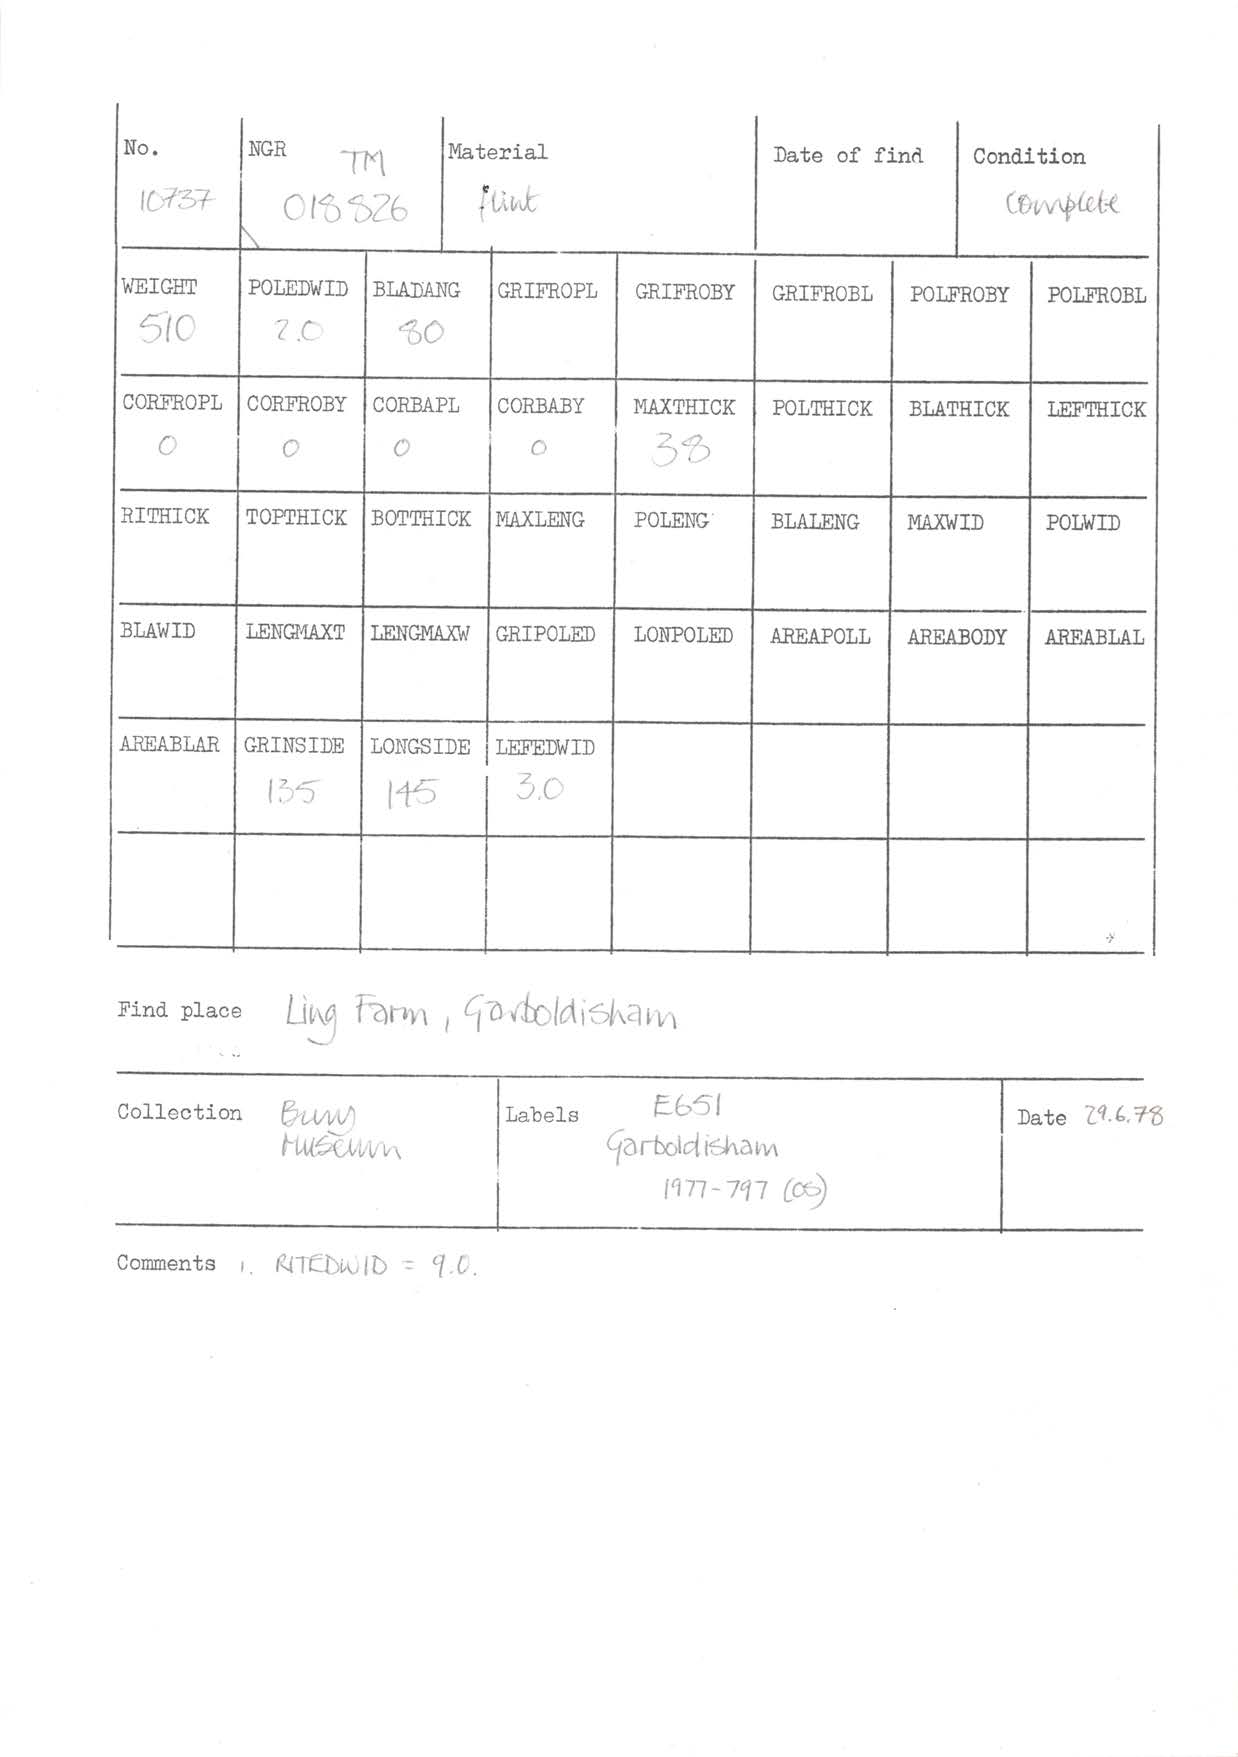 No. NGR TM Material Date of find Condition
10737 018826 flint complete
WEIGHT POLEDWID BLADANG GRIFROPL GRIFROBY GRIFROBL POLFROBY POLFROBL
510 2.0 80
CORFROPL CORFROBY CORBAPL CORBABY MAXTHICK POLTHICK BLATHICK LEFTHICK
0 0 0 0 38
RITHICK TOPTHICK BOTTHICK MAXLENG POLENG BLALENG MAXWID POLWID
BLAWID LENGMAXT LENGMAXW GRIPOLED LONPOLED AREAPOLL AREABODY AREABLAL
AREABLAR GRINSIDE LONGSIDE LEFEDWID
135 145 3.0
Find place Ling Farm, Garboldisham
Collection Bury Museum
Labels E651
Garboldisham
1977-797 (OS)
Date 29.6.78
Comments 1. RITEDWID = 9.0.